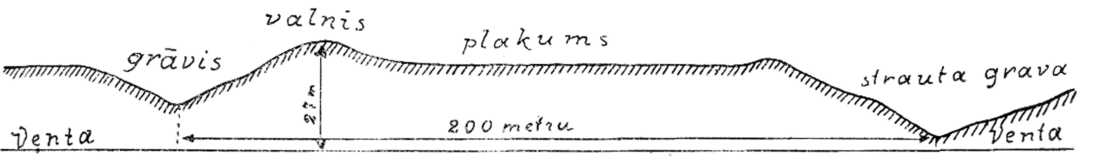 valnis
grāvis
plakums
strauta grava
27 m
200 metru
Venta
Venta